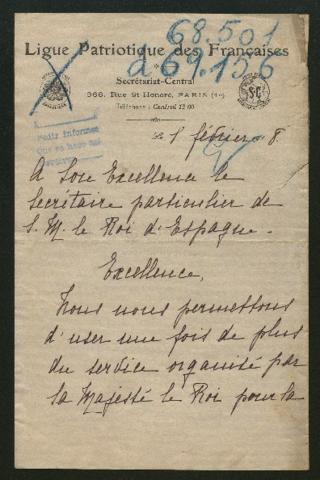 68.501
à 69.156
Ligue Patriotique des Françaises
Secrétariat-Central
368, Rue St Honoré, PARIS (1er)
Téléphone : Central 12 00
SC
Pedir informes
que se hace así
le 1 février 8.
A Son Excellence le
Secrétaire particulier de
S. M. le Roi d'Espagne.
Excellence,
Nous nous permettons
d'user une fois de plus
du service organisé par
Sa Majesté le Roi pour la